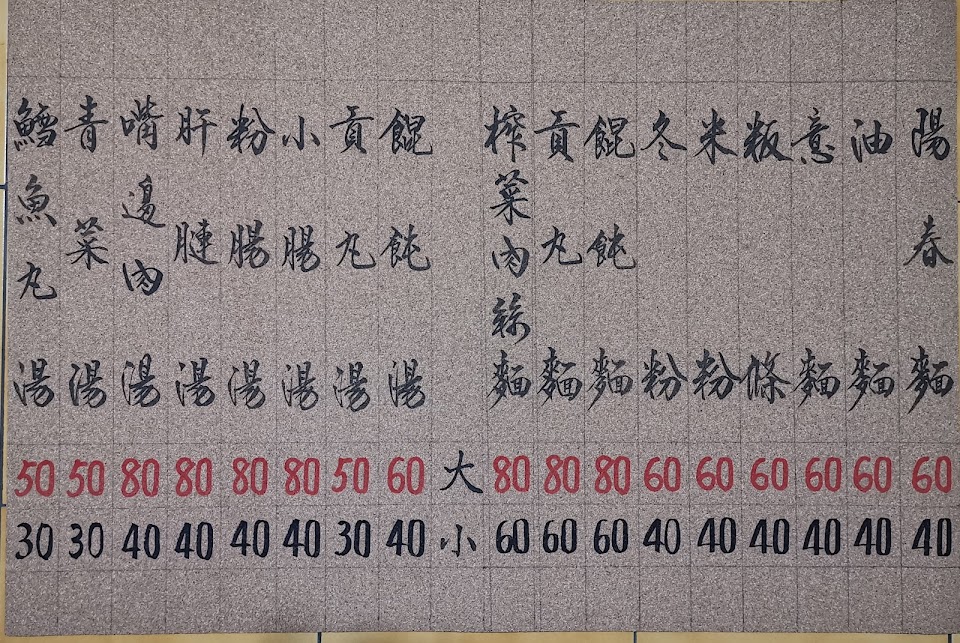 陽春麵 60 40
油麵 60 40
意麵 60 40
粄條 60 40
米粉 60 40
冬粉 60 40
餛飩麵 80 60
貢丸麵 80 60
榨菜肉絲麵 80 60
大 小
餛飩湯 60 40
貢丸湯 50 30
小腸湯 80 40
粉腸湯 80 40
肝腱湯 80 40
嘴邊肉湯 80 40
青菜湯 50 30
鱈魚丸湯 50 30